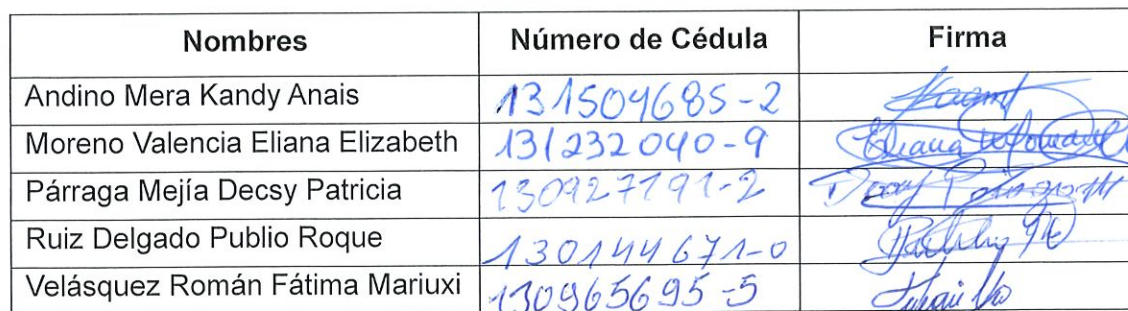 Nombres Número de Cédula Firma
Andino Mera Kandy Anais 131504685-2
Moreno Valencia Eliana Elizabeth 131232040-9 Eliana
Párraga Mejía Decsy Patricia 130927191-2
Ruiz Delgado Publio Roque 130144671-0
Velásquez Román Fátima Mariuxi 130965695-5